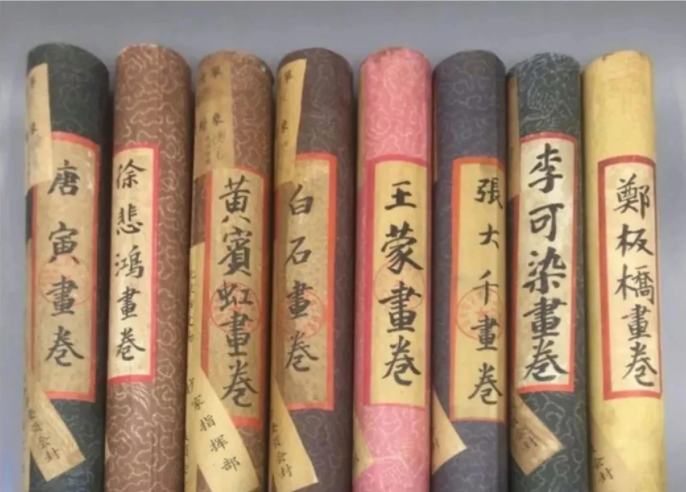 唐寅畫卷
徐悲鴻畫卷
黃賓虹畫卷
白石畫卷
王蒙畫卷
張大千畫卷
李可染畫卷
鄭板橋畫卷
指揮部